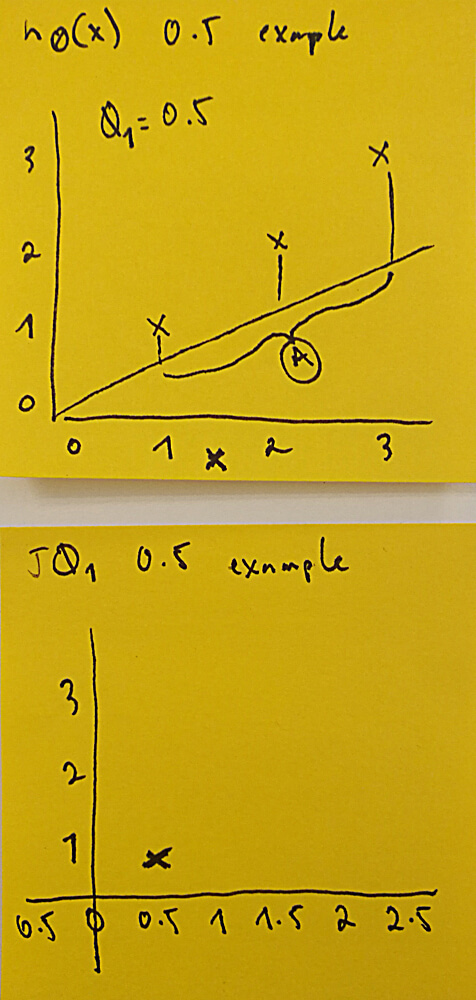 hθ(x) 0.5 example
θ1=0.5
3
2
1
0
X
X
X
A
0 1 x 2 3
Jθ1 0.5 example
3
2
1
x
0.5 0 0.5 1 1.5 2 2.5